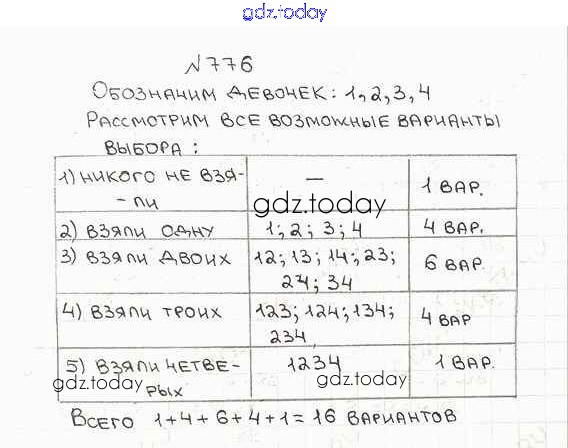 gdz.today
№776
Обозначим девочек: 1,2,3,4
Рассмотрим все возможные варианты
выбора:
1) никого не взя-
-ли
—
1 вар.
gdz.today
2) взяли одну
1; 2; 3; 4
4 вар.
3) взяли двоих
12; 13; 14; 23;
24; 34
6 вар.
4) взяли троих
123; 124; 134;
234
4 вар
5) взяли четве-
рых
1234
1 вар.
gdz.today
gdz.today
Всего 1+4+6+4+1=16 вариантов